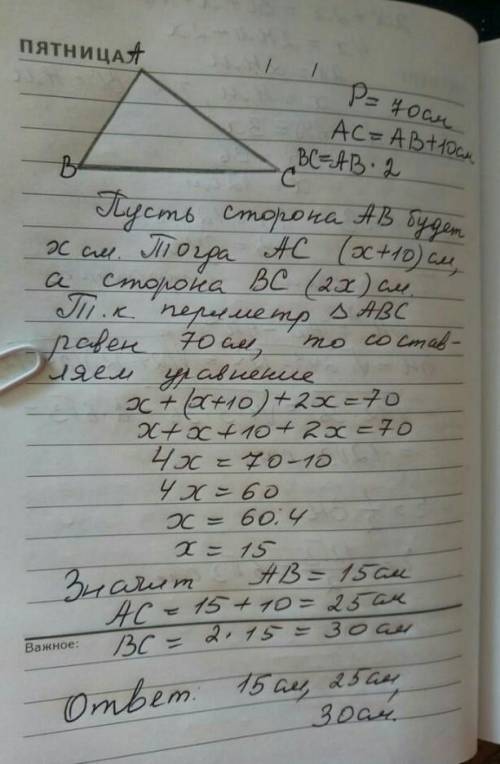 ПЯТНИЦА
A
B
C
P = 70см
AC = AB + 10см
BC = AB · 2
Пусть сторона AB будет
x см. Тогда AC (x+10) см,
а сторона BC (2x) см.
Т.к. периметр △ ABC
равен 70 см, то состав-
ляем уравнение
x + (x+10) + 2x = 70
x + x + 10 + 2x = 70
4x = 70-10
4x = 60
x = 60:4
x = 15
Значит AB = 15см
AC = 15 + 10 = 25см
Важное: BC = 2 · 15 = 30 см
Ответ: 15см, 25см,
30см.